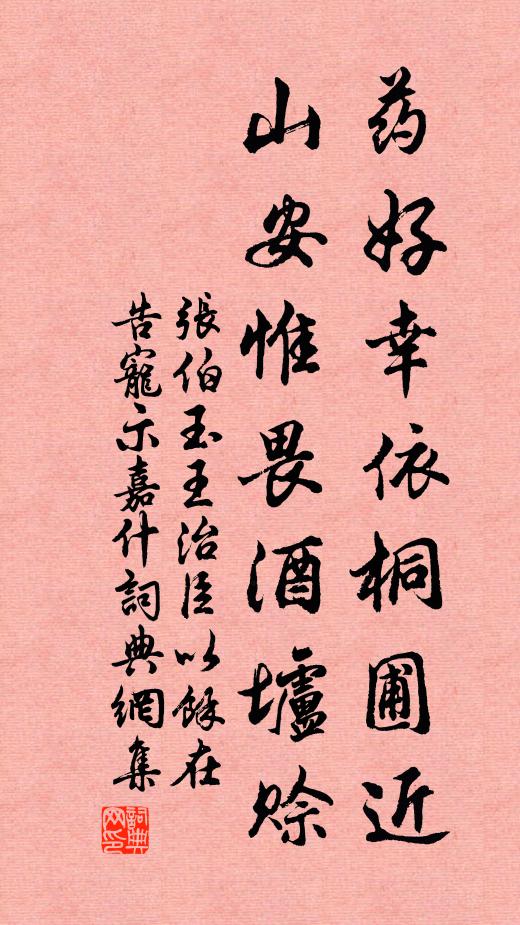 药好幸依桐圃近
山安惟畏酒壚赊
張伯玉王治臣以餘在
告寵示嘉什詞典網集
詞典网印